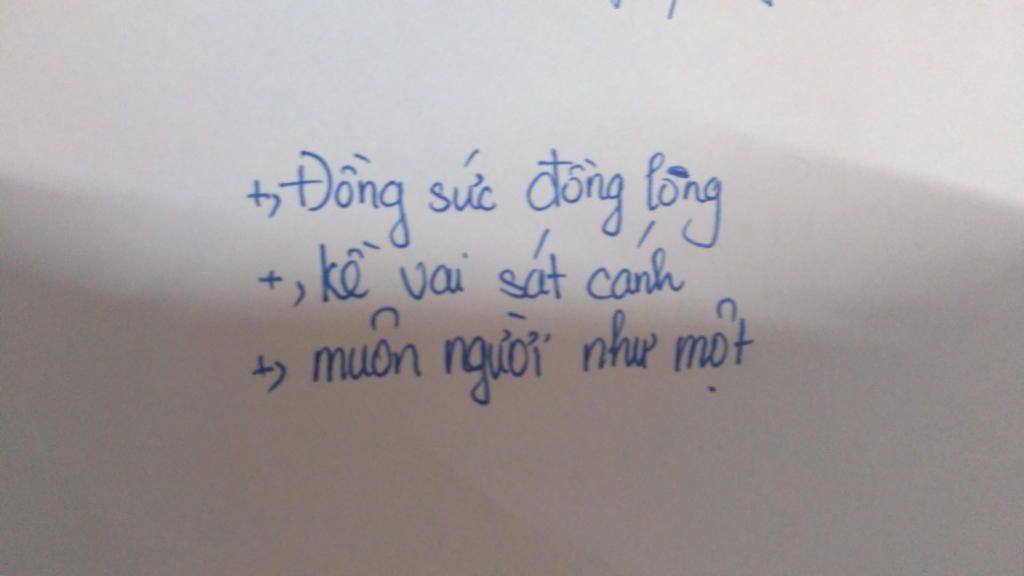 +, Đồng sức đồng lòng
+, kề vai sát cánh
+, muôn người như một